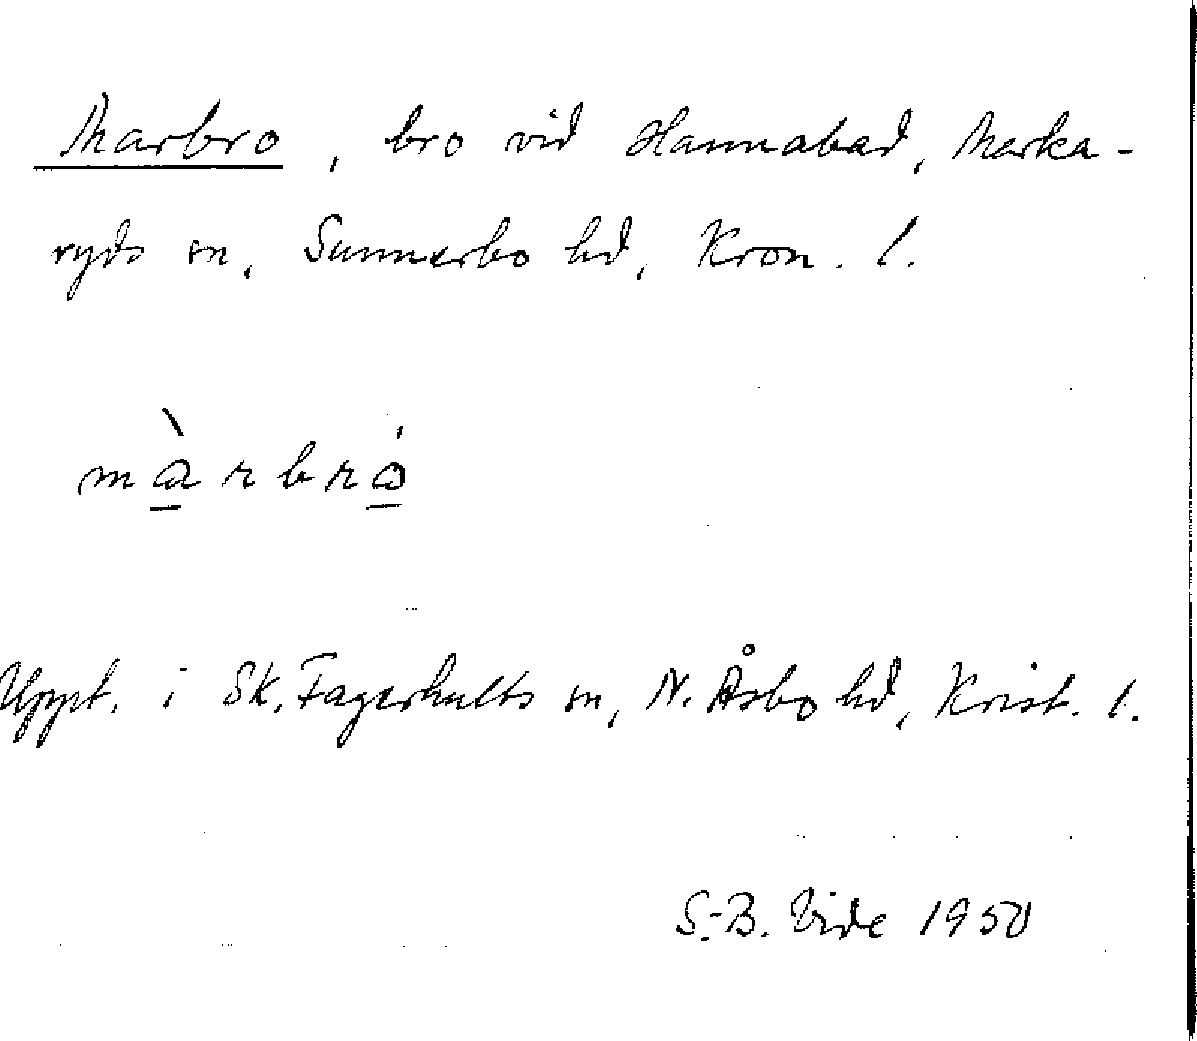 Marbro, bro vid Hannabad, Marka-
ryds sn, Sunnerbo hd, Kron. l.
màrbrò
Uppt. i Sk. Fagerhults sn, N. Åsbo hd, Krist. l.
S.-B. Vide 1950